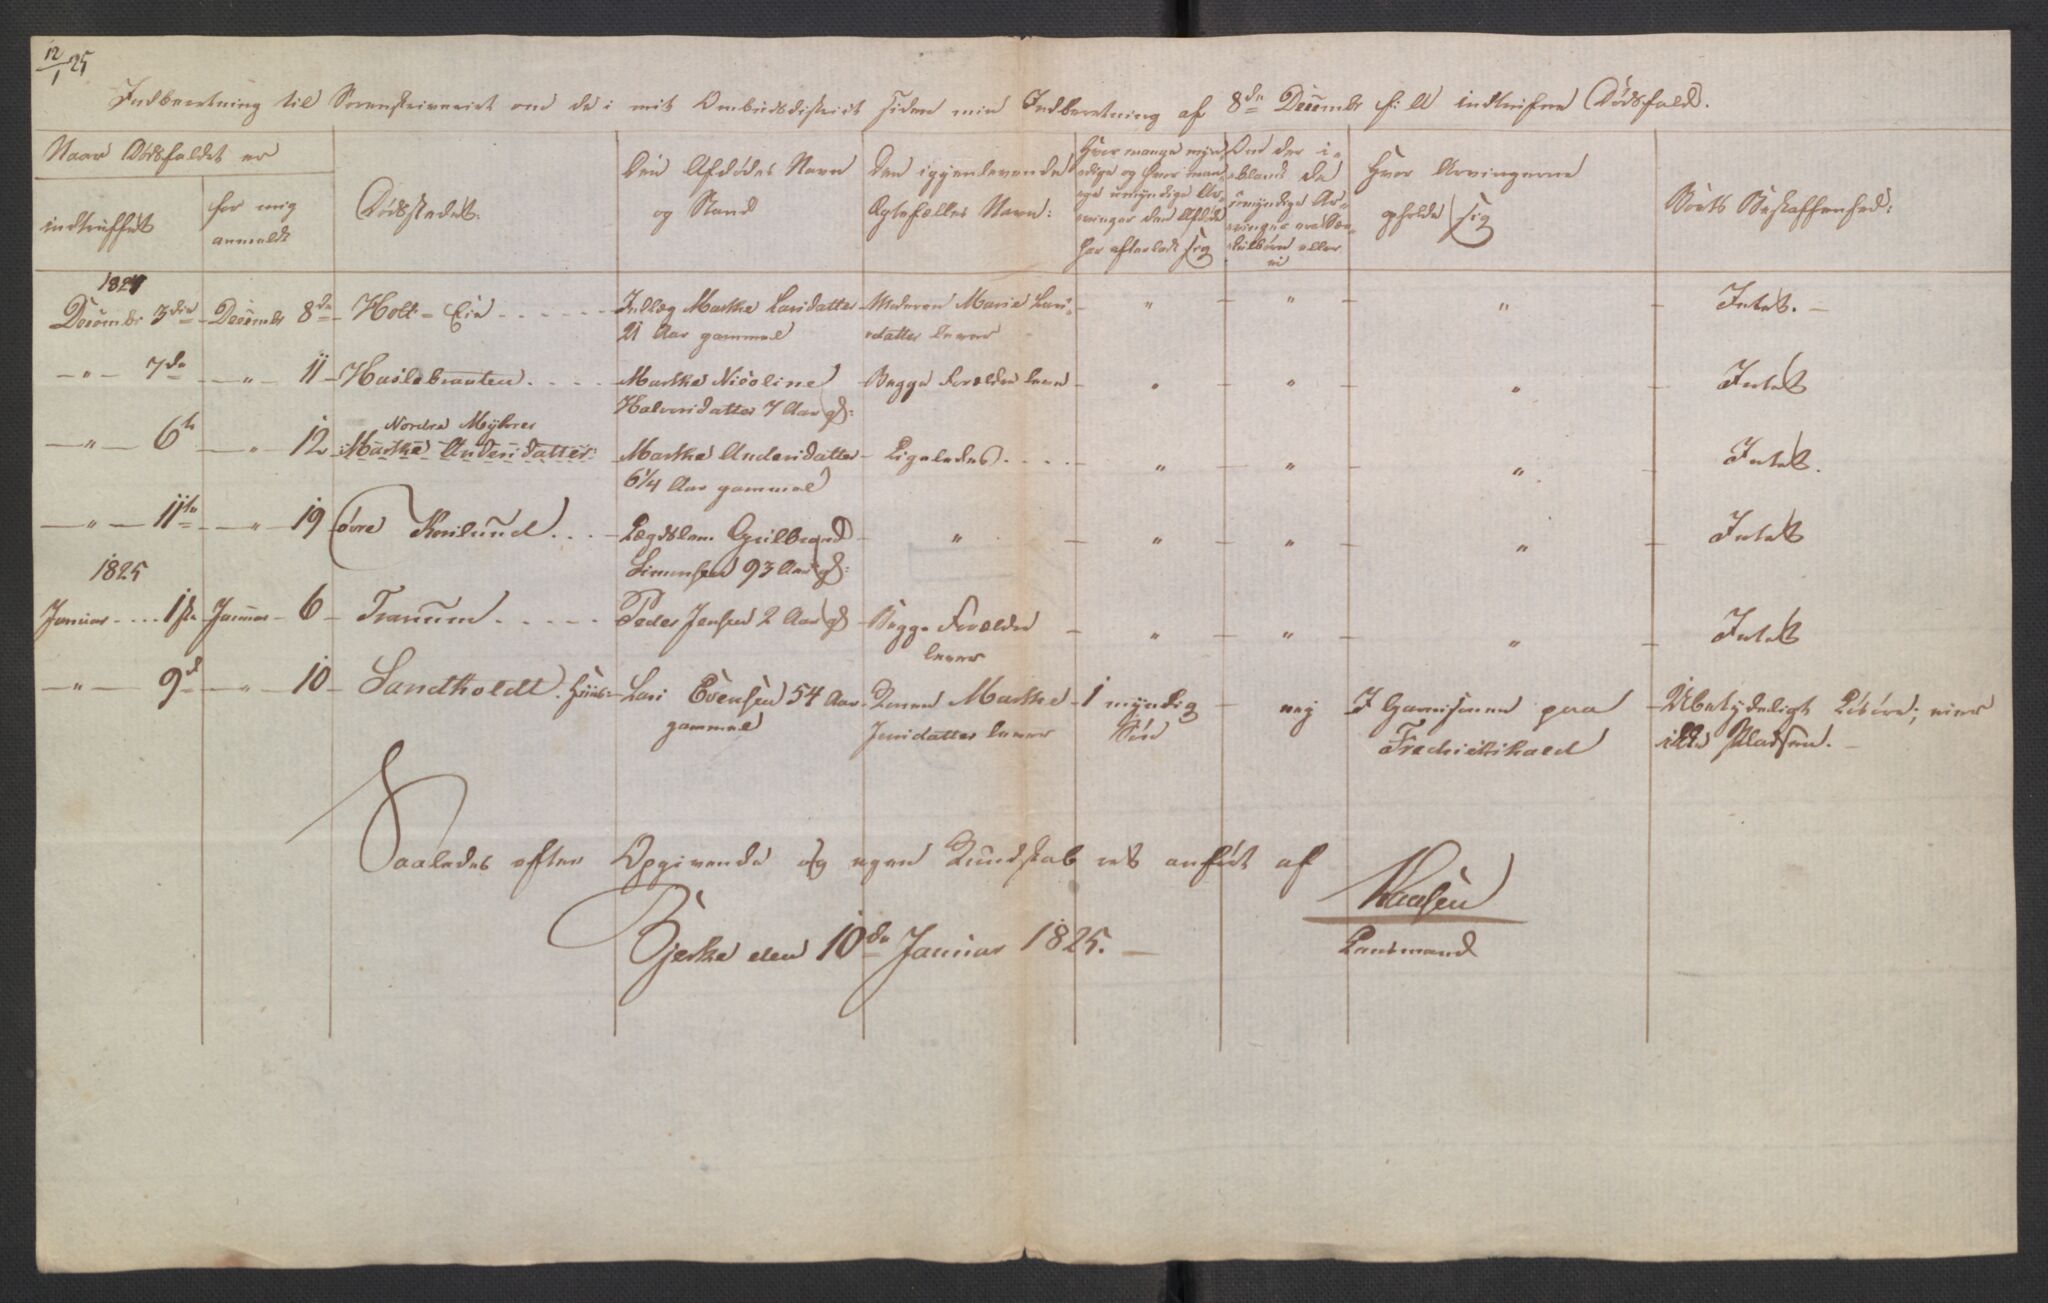 12/1 25
Indberetning til Sorenskriveriet om de i mit Ombudsdistrict siden min Indberetning af 8de Decembr f: A indtrufne Dødsfald.
Naar Dødsfaldet er
indtruffet
for mig
anmeldt
Dødsstedet.
Den Afdødes Navn
og Stand
Den igjenlevende
Ægtefælles Navn:
Hvor mange myn-
dige og hvor man-
ge umyndige Ar-
vinger den Afdøde
har efterladt sig
Om der i-
blandt de
umyndige Ar-
vinger ere Sær-
kulbørn eller
ei
Hvor Arvingerne
opholde sig
Boets Beskaffenhed:
1824
Decembr 3die Decembr 8de Holt-Eie Indlæg Marthe Larsdatter Moderen Marie Lars- " " " Intet.
21 Aar gammel datter lever
" 7de " 11 Haslebraaten Marthe Nicoline Begge Forældre leve " " " Intet
Halvorsdatter 7 Aar gl:
Nordre Myhrer
" 6te " 12 Marthe Andersdatter: Marthe Andersdatter Ligeledes " " " Intet.
6 1/4 Aar gammel
" 11te " 19 øvre Lægdslem Gulbrand " " " " Intet
Simensen 93 Aar gl:
1825
Januar 1ste Januar 6 Tranum Peder Jensen 2 Aar gl Begge Forældre " " " Intet
lever
" 9d " 10 Sandholdt Huus- Lars Evensen 54 Aar Konen Marthe 1 myndig nej I Garnisonen paa Ubetydeligt Løsøre; eier
gammel Jensdatter lever Søn Fredrikshald ikke Pladsen.
Saaledes efter Opgivende og egen Kundskab ret anført af
Haasen
Bjerke den 10de Januar 1825.
Lensmand